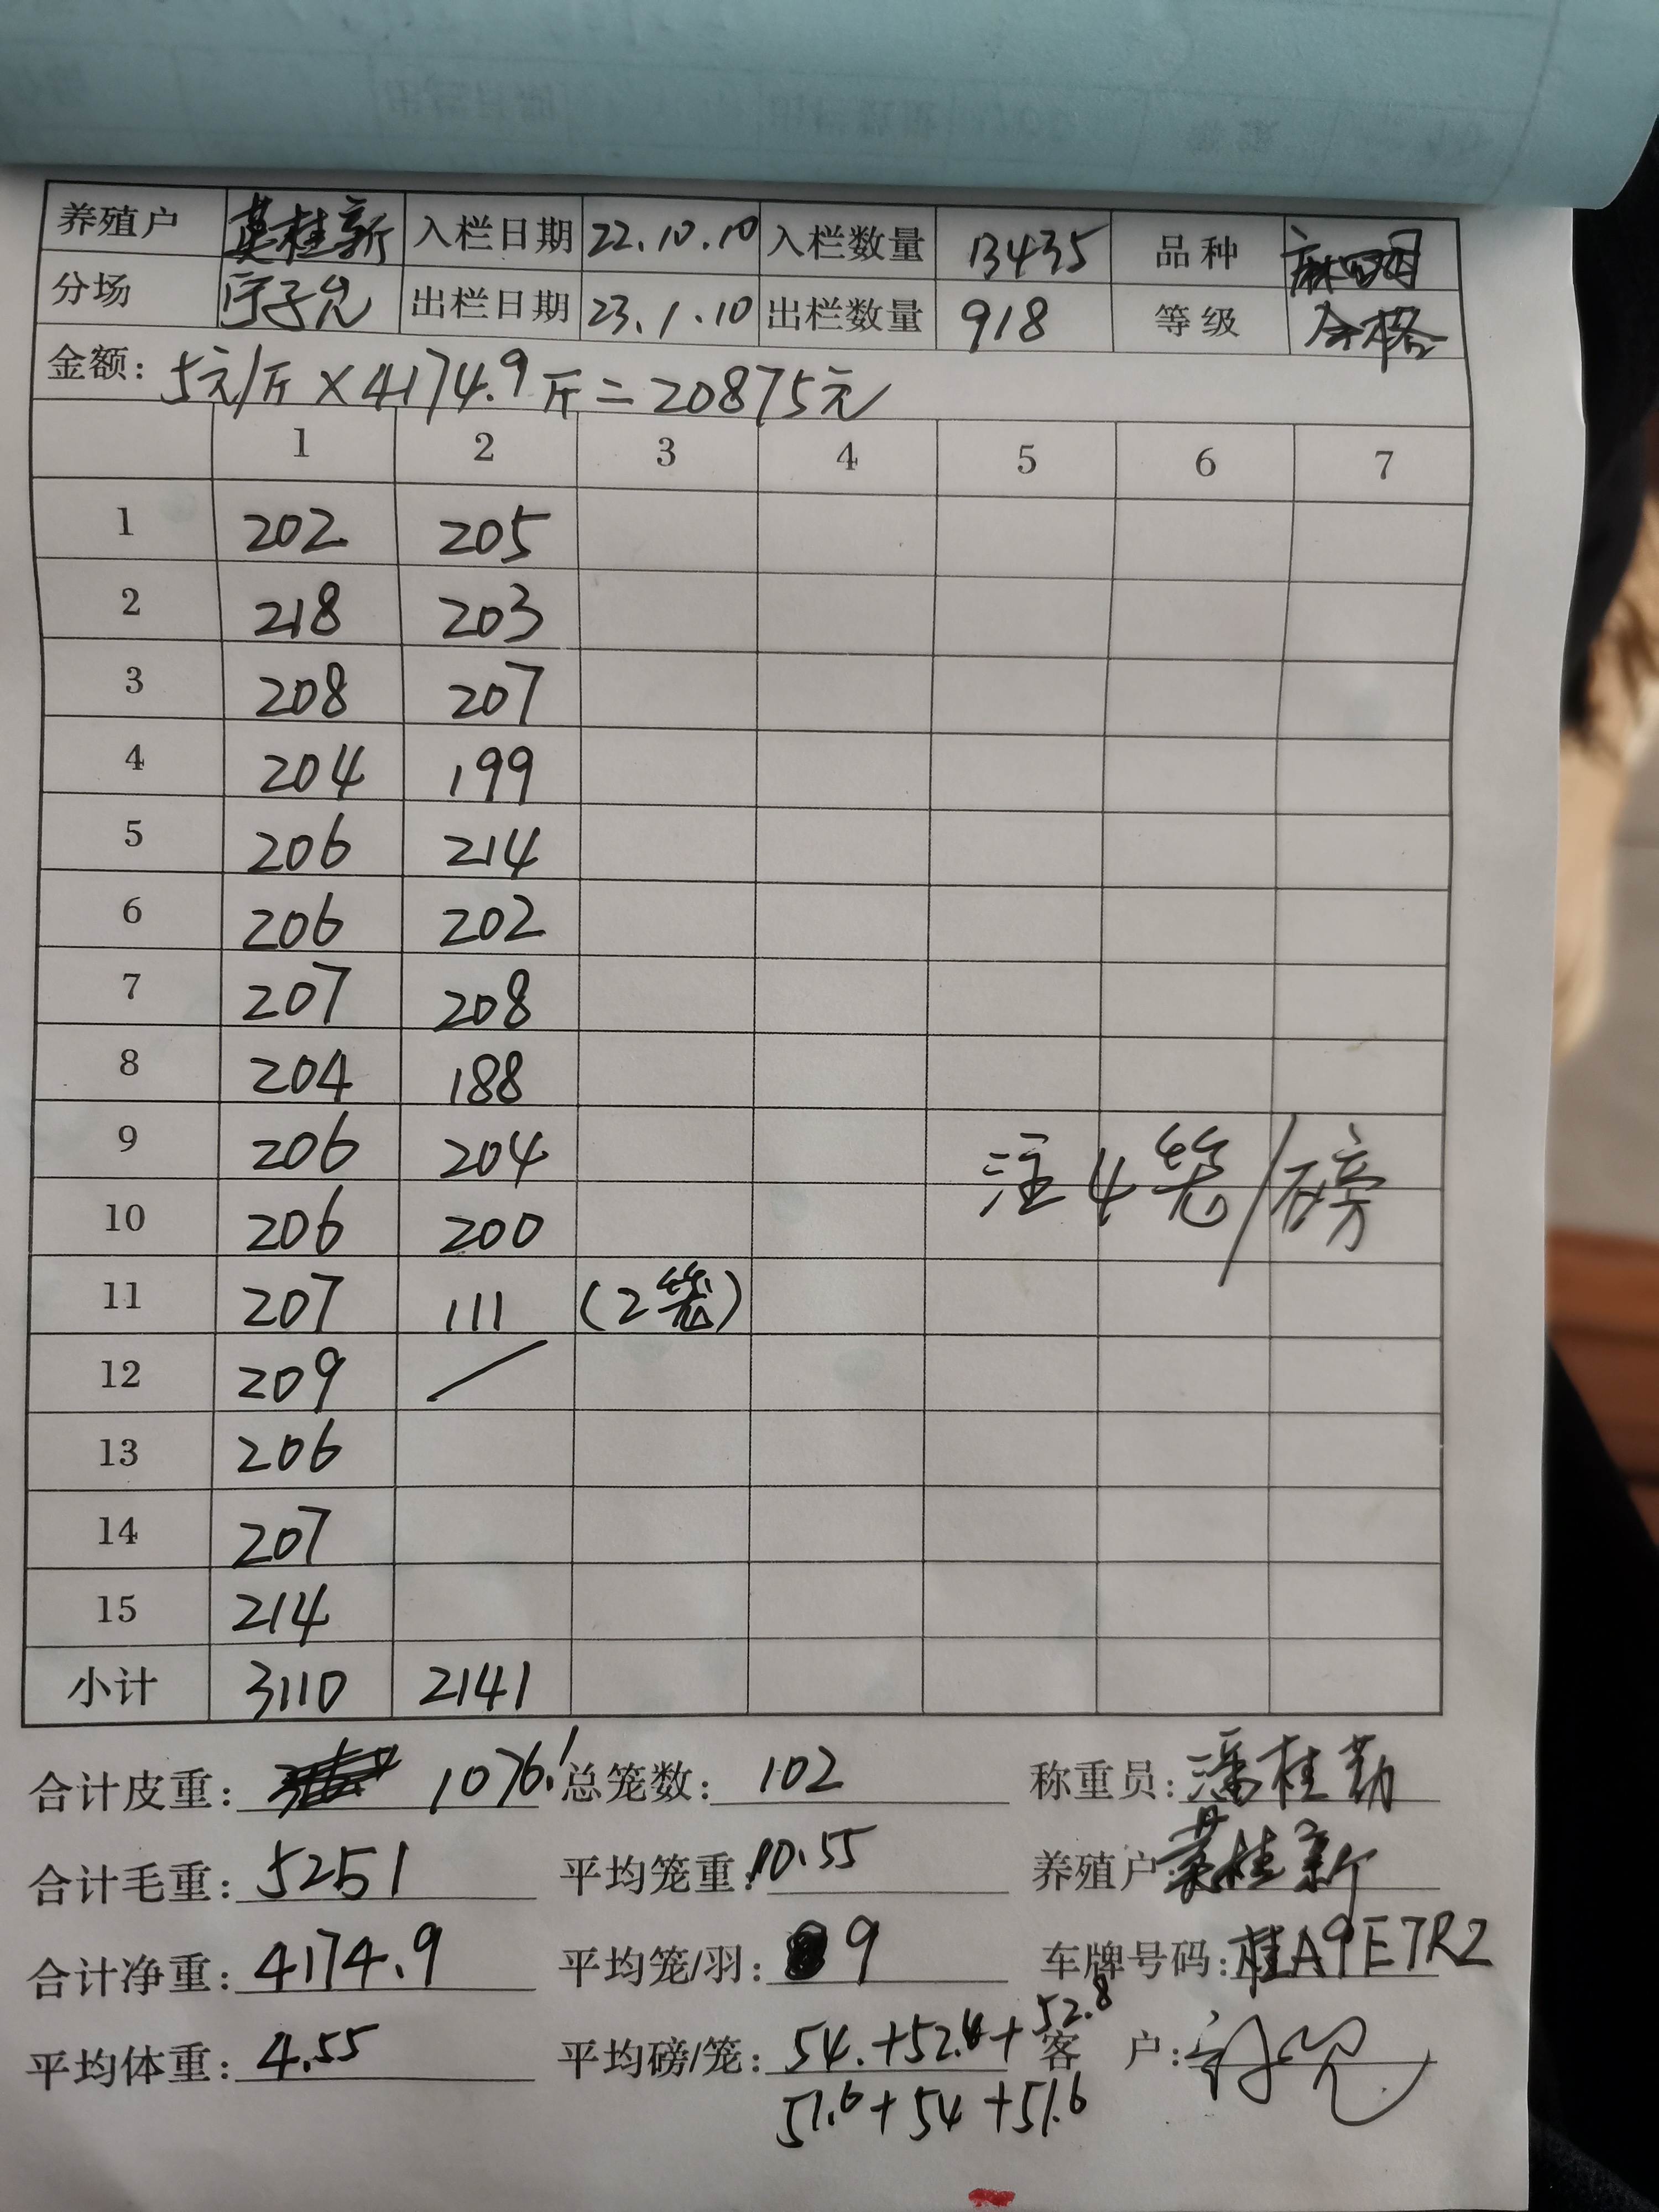 养殖户 英桂新 入栏日期 22.10.10 入栏数量 13435 品种
分场 出栏日期 23.1.10 出栏数量 918 等级 合格
金额: 5元/斤×4174.9斤=20875元
1 2 3 4 5 6 7
1 202 205
2 218 203
3 208 207
4 204 199
5 206 214
6 206 202
7 207 208
8 204 188
9 206 204
注4笼/磅
10 206 200
11 207 111 (2笼)
12 209 /
13 206
14 207
15 214
小计 3110 2141
合计皮重: 1076.1 总笼数: 102 称重员: 潘桂勤
合计毛重: 5251 平均笼重: 10.55 养殖户: 桂新
合计净重: 4174.9 平均笼/羽: 9 车牌号码: 桂A9E7R2
平均体重: 4.55 平均磅/笼: 54.+52.4+52.8 客 户:
51.6+54+51.6